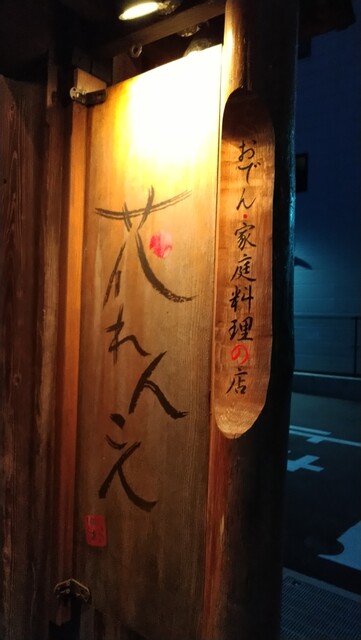 おでん・家庭料理の店
花れんこん